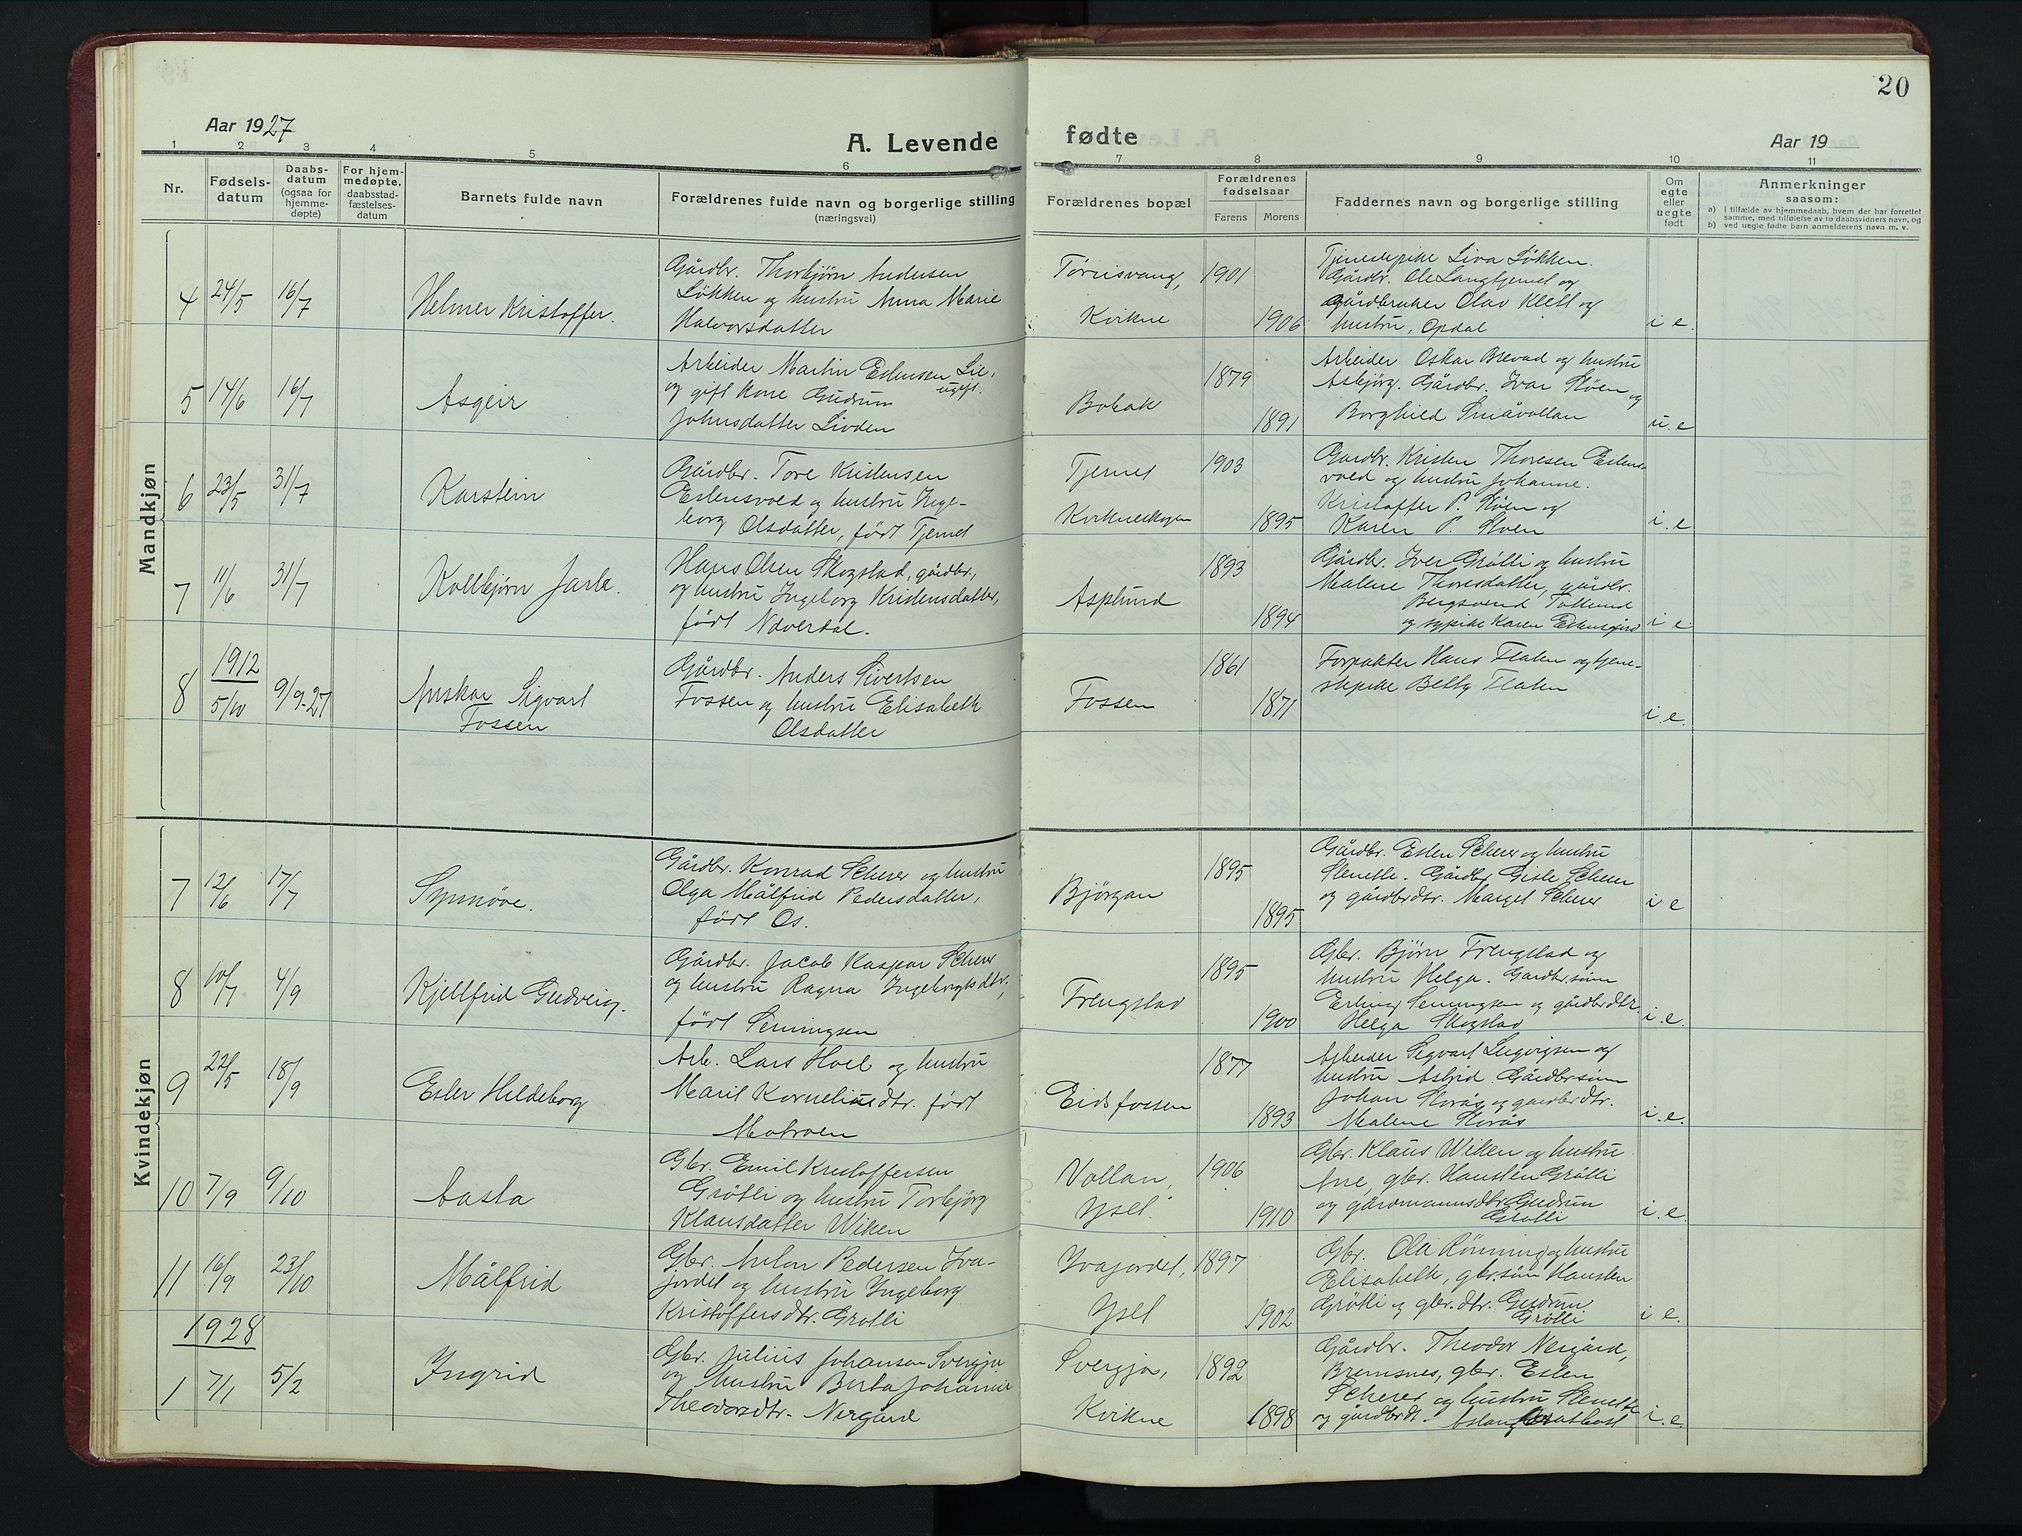 20
Aar 1927
A. Levende fødte
Aar 19
1 2 3 4 5 6 7 8 9 10 11
Nr.
Fødsels-
datum
Daabs-
datum
(ogsaa for
hjemme-
døpte)
For hjem-
medøpte,
daabsstad-
fæstelses-
datum
Barnets fulde navn
Forældrenes fulde navn og borgerlige stilling
(næringsvei)
Forældrenes bopæl
Forældrenes
fødselsaar
Farens Morens
Faddernes navn og borgerlige stilling
Om
egte
eller
uegte
født
Anmerkninger
saasom:
a) i tilfælde av hjemmedaab, hvem der har forrettet
samme, med tilføielse av to daabsvidners navn, og
b) ved uegte fødte barn anmelderens navn m. v.
Mandkjøn
4 24/5 16/7 Helmer Kristoffer.
Gårdbr. Thorbjørn Andersen
Løkken og hustru Anna Marie
Halvorsdatter
Kvikne
1901
1906
Tjenestepike Liva Løkken.
Gårdbr. Ole Langtjernet og
Gårdbruker Olav Klett og
hustru, Opdal
i e.
5 14/6 16/7 Asgeir
Arbeider Martin Estensen Lie,
og gift kone Gudrun
Johnsdatter Livden
Bobak
1879
1891
Arbeider Oskar Brevad og hustru
Asbjørg. Gårdbr. Ivar Støen og
Borghild Småvollan
u. e
6 23/5 31/7 Karstein
Gårdbr. Tore Kristensen
Estensvold og hustru Inge-
borg Olsdatter, født Tjernet
Tjernet
Kvikneskogen
1903
1895
Gardbr. Kristen Thoresen Estens-
vold og hustru Johanne.
Kristoffer P. Støen og
Karen P. Støen
i. e
7 11/6 31/7 Kolbjørn Jarle.
Hans Olsen Skogstad, gårdbr.,
og hustru Ingeborg Kristensdatter,
født Næverdal.
Asplund
1893
1894
Gårdbr. Iver Grøtli og hustru
Malene Thoresdatter, gårdbr.
Bergsvend
og sypike Karen
i e
8 1912
5/10 9/9-27 Anskar Sigvart
Fossen
Gårdbr. Anders Sivertsen
Fossen og hustru Elisabeth
Olsdatter
Fossen
1861
1871
Forpakter Hans Flaten og tjene-
stepike Betty Flaten
i. e.
Kvindekjøn
7 12/6 17/7 Synnøve.
Gårdbr. Konrad Scherer og hustru
Olga Målfrid Pedersdatter,
født Os.
Bjørgan
1895
1895
Gårdbr. Esten Scherer og hustru
Stenette. Gårdbr. Gisle Scherer
og gårdbrdtr. Marget Scherer
i e
8 10/7 4/9 Kjellfrid Gudveig.
Gårdbr. Jacob Kaspar Scherer
og hustru Ragna Ingeborgtsdtr.,
født Semingsen
Frengstad
1895
1900
Gbr. Bjørn Frengstad og
hustru Helga. Gardbr.sønn
Erling Semmingsen og gårdbrdtr.
Helga Skogstad
i. e.
9 22/5 18/9 Ester Hildeborg
Arb. Lars Hoel og hustru
Marit Korneliusdtr. født
Motroen
Eidsfossen
1877
1893
Arbeider Sigvart Ingvigsen og
hustru Astrid. Gårdbr.sønn
Johan Storås og gårdbrdtr.
Malene Storås
i. e.
10 7/9 9/10 Aasta
Gbr. Emil Kristoffersen
Grøtli og hustru Torbjørg
Klausdatter Wiken
Vollan,
Yset.
1906
1910
Gbr. Klaus Wiken og hustru
Ane, gbr. Hansten Grøtli
og gårdmannsdtr. Gudrun
Grøtli
i. e.
11 16/9 23/10 Målfrid
Gbr. Anton Pedersen Iva-
jordet og hustru Ingeborg
Kristoffersdtr. Grøtli
Ivajordet,
Yset
1897
1902
Gbr. Ola Rønning og hustru
Elisabeth, gbr.sønn Hansten
Grøtli og gbr.dtr. Gudrun
Grøtli
i e.
1928
1 7/1 5/2 Ingrid
Gbr. Julius Johansen Svergja
og hustru Berta Johanne
Theodorsdtr. Nergård
Svergja,
Kvikne
1892
1898
Gårdbr. Theodor Nergård,
Bremsnes, gbr. Esten
Scherer og hustru Stenette
og gårdbrdt.
i. e.